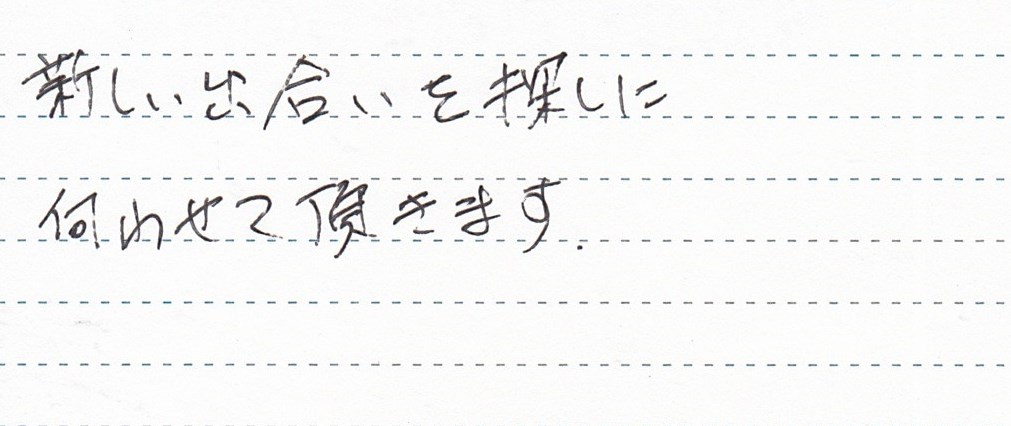 新しい出合いを探しに
伺わせて頂きます.